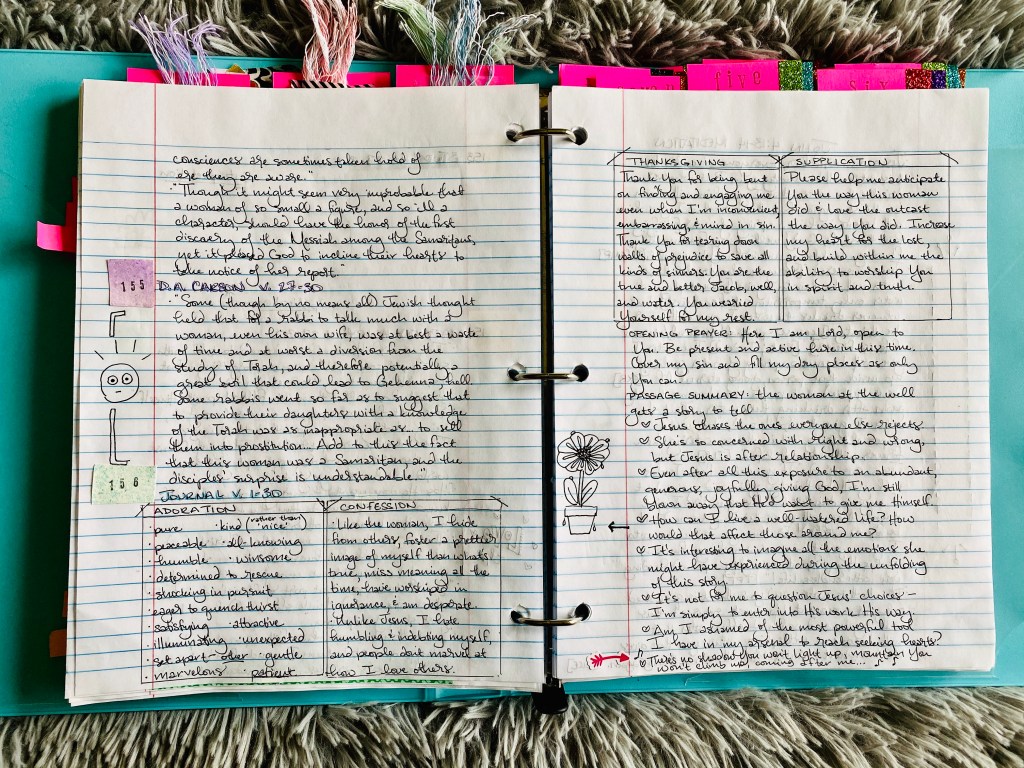 five
six
consciences are sometimes taken hold of
ere they are aware."
·"Though it might seem very improbable that
a woman of so small a figure, and so ill a
character, should have the honor of the first
discovery of the Messiah among the Samaritans,
yet it pleased God to incline their hearts to
take notice of her report."
155
D.A. CARSON V. 27-30
·"Some (though by no means all) Jewish thought
held that for a rabbi to talk much with a
woman, even his own wife, was at best a waste
of time and at worst a diversion from the
study of Torah, and therefore potentially a
great evil that could lead to Gehenna, hell.
Some rabbis went so far as to suggest that
to provide their daughters with a knowledge
of the Torah was as inappropriate as to sell
them into prostitution. Add to this the fact
that this woman was a Samaritan, and the
disciples' surprise is understandable."
156
JOURNAL V. 1-30
ADORATION
·pure ·kind (rather than "nice")
·peaceable ·all-knowing
·humble ·winsome
·determined to rescue
·shocking in pursuit
·eager to quench thirst
·satisfying ·attractive
·illuminating ·unexpected
·set apart-other ·gentle
·marvelous ·patient
CONFESSION
·Like the woman, I hide
from others, foster a prettier
image of myself than what's
true, miss meaning all the
time, have worshiped in
ignorance, & am desperate.
·Unlike Jesus, I hate
humbling & indebting myself,
and people don't marvel at
how I love others.
THANKSGIVING
Thank You for being bent
on finding and engaging me
even when I'm inconvenient,
embarrassing, & mired in sin.
Thank You for tearing down
walls of prejudice to save all
kinds of sinners. You are the
true and better Jacob, well,
and water. You wearied
Yourself for my rest.
SUPPLICATION
Please help me anticipate
You the way this woman
did & love the outcast
the way You did. Increase
my heart for the lost,
and build within me the
ability to worship You
in spirit and truth.
OPENING PRAYER: Here I am Lord, open to
You. Be present and active here in this time.
Cover my sin and fill my dry places as only
You can.
PASSAGE SUMMARY: the woman at the well
gets a story to tell
♡ Jesus chases the ones everyone else rejects
♡ She's so concerned with right and wrong,
but Jesus is after relationship.
♡ Even after all this exposure to an abundant,
generous, joyfully giving God, I'm still
blown away that He'd want to give me Himself.
♡ How can I live a well-watered life? How
would that affect those around me?
♡ It's interesting to imagine all the emotions she
might have experienced during the unfolding
of this story.
♡ It's not for me to question Jesus' choices -
I'm simply to enter into His work His way.
♡ Am I ashamed of the most powerful tool
I have in my arsenal to reach seeking hearts?
♪ There's no shadow You won't light up, mountain You
won't climb up, coming after me... ♪ ♪